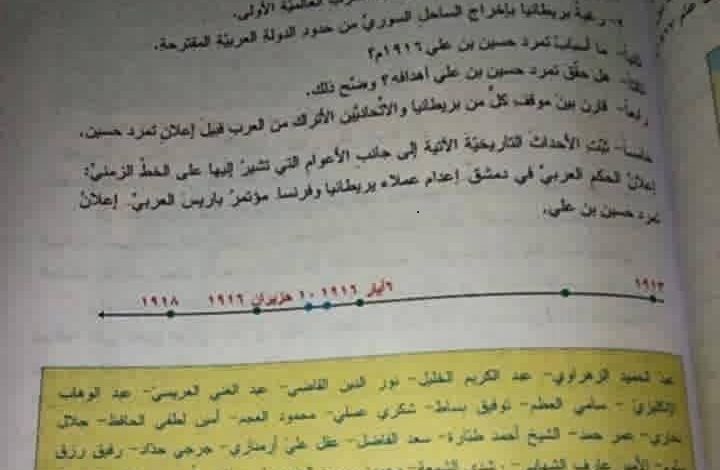 العالميّة الأولى.
٢- رغبة بريطانيا بإخراج الساحل السوريّ من حدود الدولة العربيّة المقترحة.
ثانياً- ما أسباب تمرد حسين بن علي ١٩١٦م؟
ثالثاً- هل حقّق تمرد حسين بن علي أهدافه؟ وضّح ذلك.
رابعاً- قارن بين موقف كلٍّ من بريطانيا والاتّحاديّين الأتراك من العرب قبيل إعلان تمرد حسين.
خامساً- ثبّت الأحداث التاريخيّة الآتية إلى جانب الأعوام التي تشير إليها على الخطّ الزمنيّ:
إعلان الحكم العربيّ في دمشق. إعدام عملاء بريطانيا وفرنسا. مؤتمر باريس العربيّ. إعلان
تمرد حسين بن علي.
١٩١٣ ٦أيار ١٩١٦ ١٠ حزيران ١٩١٦ ١٩١٨
عبد الحميد الزهراوي- عبد الكريم الخليل- نور الدين القاضي- عبد الغني العريسيّ- عبد الوهاب
الإنكليزيّ- سامي العظم- توفيق بساط- شكري عسلي- محمود العجم- أمين لطفي الحافظ- جلال
بخاري- عمر حمد- الشيخ أحمد طبّارة- سعد الفاضل- عقل عليّ أرمنازي- جرجي حدّاد- رفيق رزق
الأمير عارف الشهابي- رشدي الشمعة-